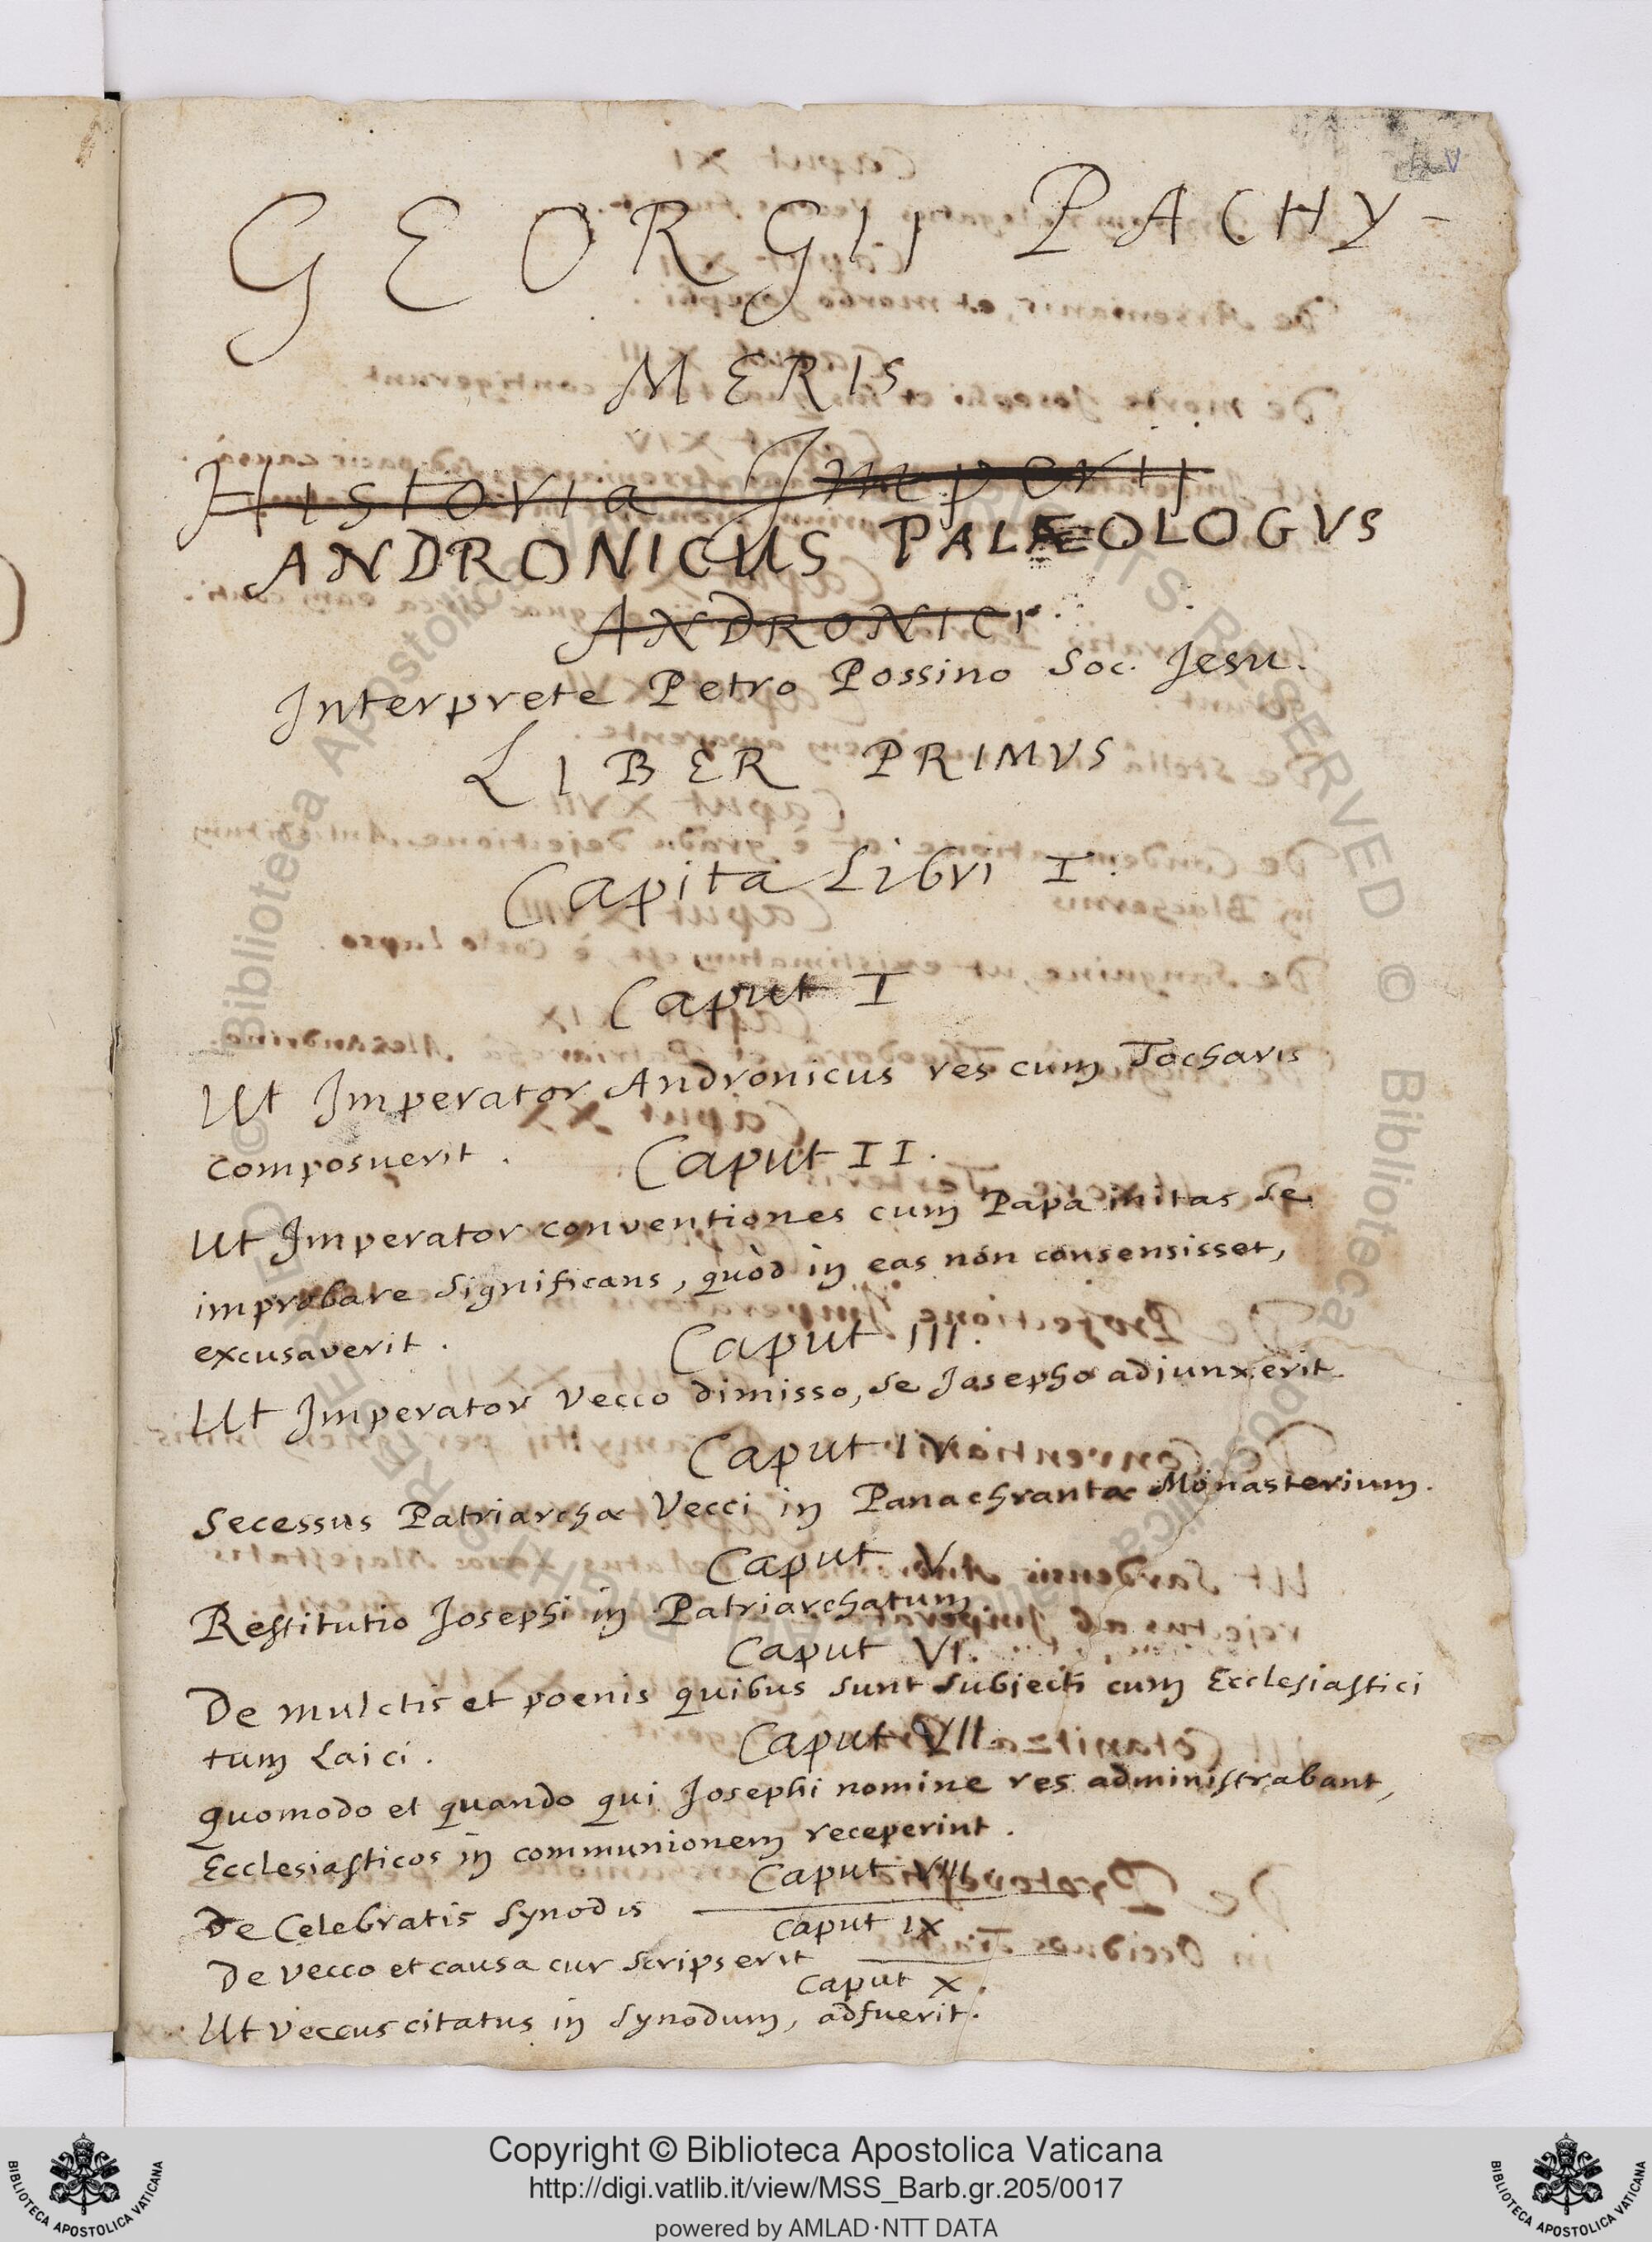 V
GEORGIJ PACHY-
MERIS
Historia Imperij
ANDRONICUS PALÆOLOGVS
ANDRONICI.
Interprete Petro Possino Soc. Jesu.
LIBER PRIMVS
Capita Libri I.
Caput I
Ut Imperator Andronicus res cum Tocharis
composuerit. Caput II.
Ut Imperator conventiones cum Papa initas se
improbare significans, quòd in eas non consensisset,
excusaverit. Caput III.
Ut Imperator Vecco dimisso, se Josepho adiunxerit.
Caput IV
Secessus Patriarchæ Vecci in Panachrantæ Monasterium.
Caput V
Restitutio Josephi in Patriarchatum
Caput VI.
De mulctis et poenis quibus sunt subjecti cum Ecclesiastici
tum Laici. Caput VII
Quomodo et quando qui Josephi nomine res administrabant,
Ecclesiasticos in communionem receperint.
Caput VIII
De Celebratis Synodis
Caput IX
De Vecco et causa cur scripserit
Caput X.
Ut Veccus citatus in Synodum, adfuerit.
Copyright © Biblioteca Apostolica Vaticana
http://digi.vatlib.it/view/MSS_Barb.gr.205/0017
powered by AMLAD·NTT DATA
BIBLIOTECA APOSTOLICA VATICANA
BIBLIOTECA APOSTOLICA VATICANA